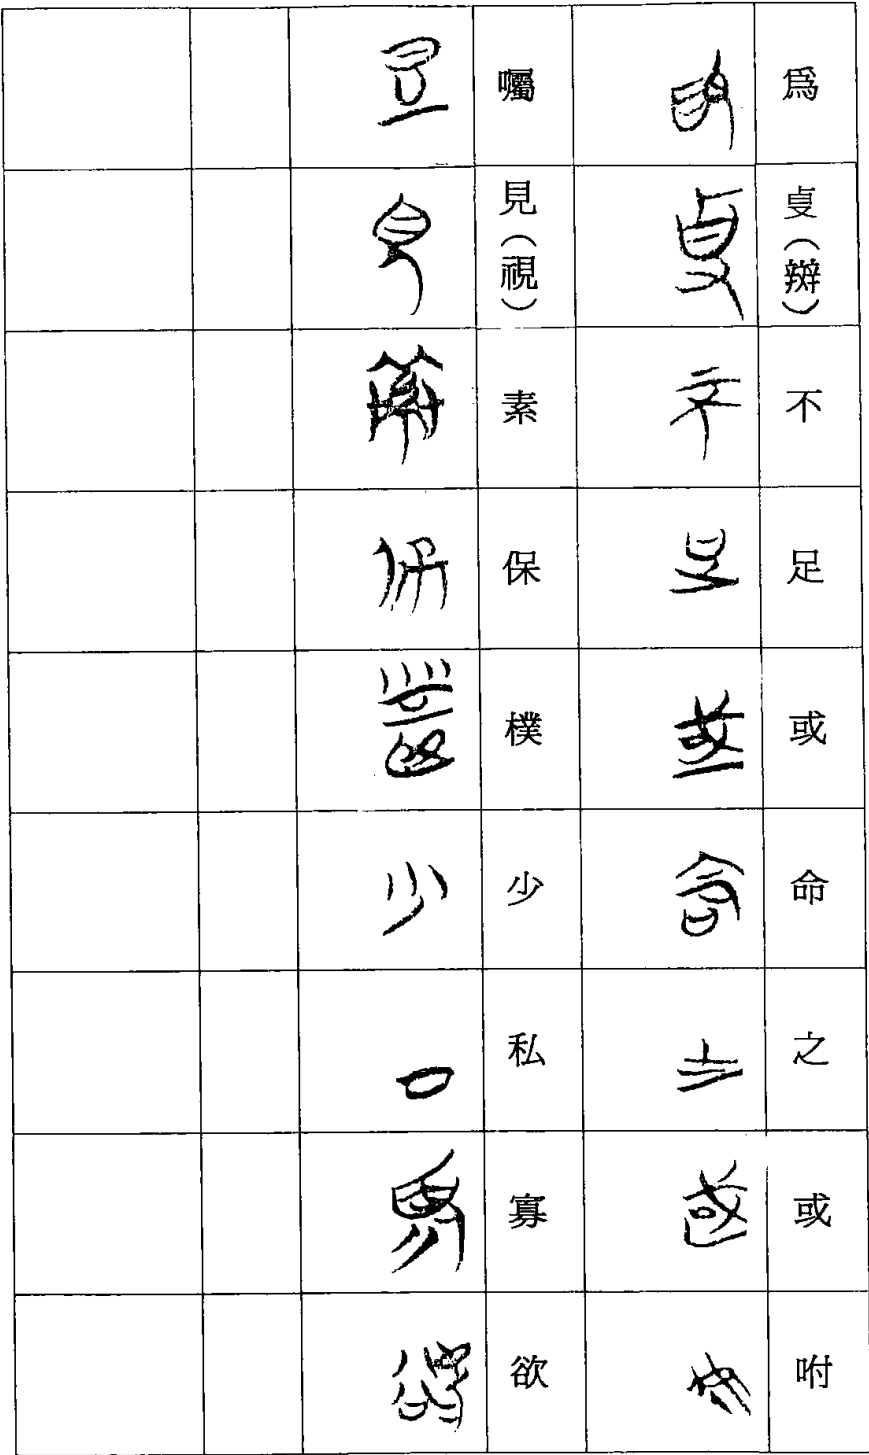 爲𠭯（辯）不足或命之或咐
囑見（視）素保樸少私寡欲